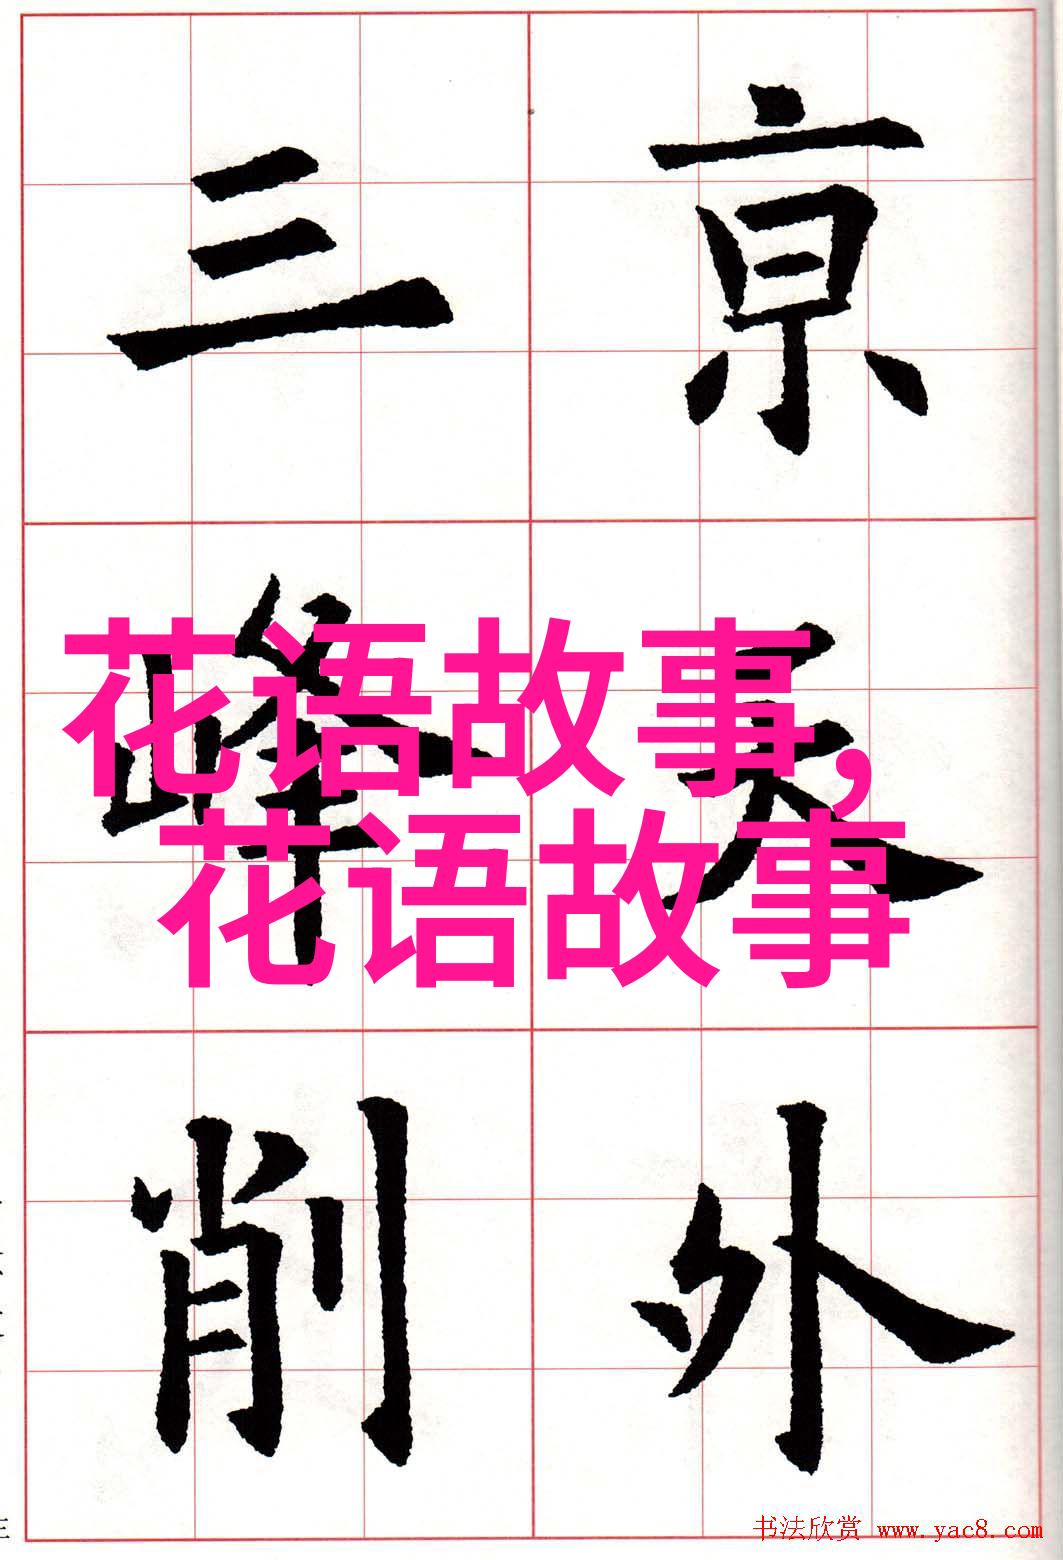 亰天外
三峰削
花语故事,
花语故事
书法欣赏 www.yac8.com